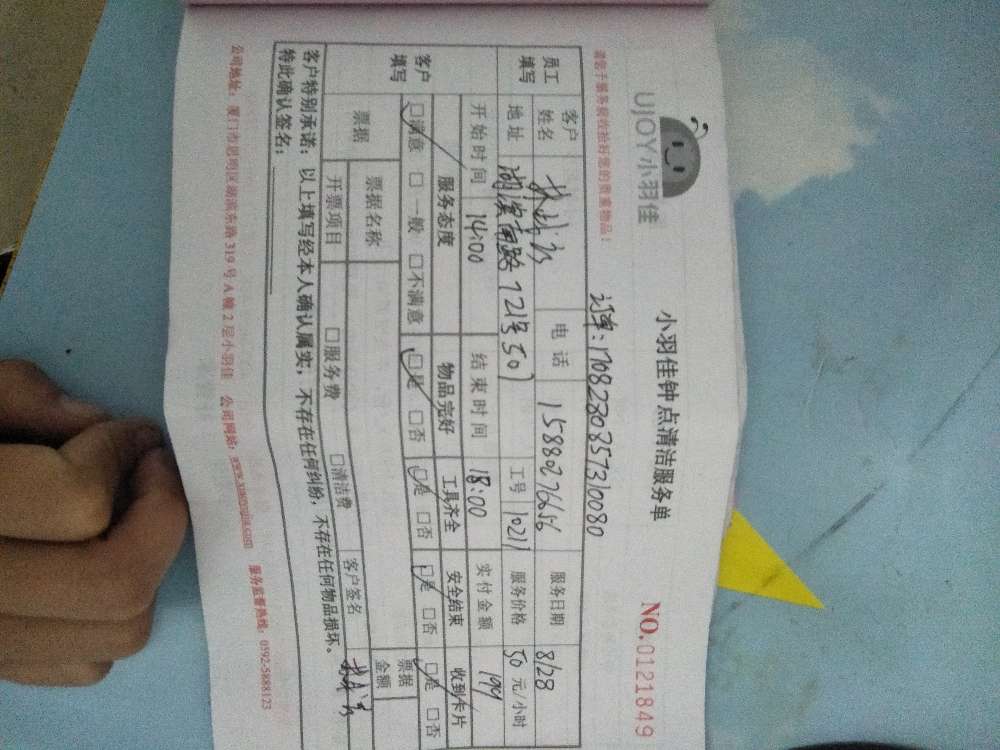 UJOY小羽佳
小羽佳钟点清洁服务单
NO.0121849
请您于服务前收拾好您的贵重物品!
订单:1708280357310080
员工填写 客户姓名 电话 15880276656 服务日期 8/28
地址 湖滨南路721号507 工号 10211 服务价格 50元/小时
开始时间 14:00 结束时间 18:00 实付金额 199
客户填写 服务态度 物品完好 工具齐全 安全结束 收到卡片
☑满意 □一般 □不满意 ☑是 □否 ☑是 □否 ☑是 □否 ☑是 □否
票据 票据名称 票据金额
开票项目 □服务费 □清洁费 客户签名
客户特别承诺:以上填写经本人确认属实,不存在任何纠纷,不存在任何物品损坏。
特此确认签名:
公司地址:厦门市思明区湖滨东路319号A幢2层小羽佳 公司网站:www.xiaoyujia.com 服务监督热线:0592-5888123